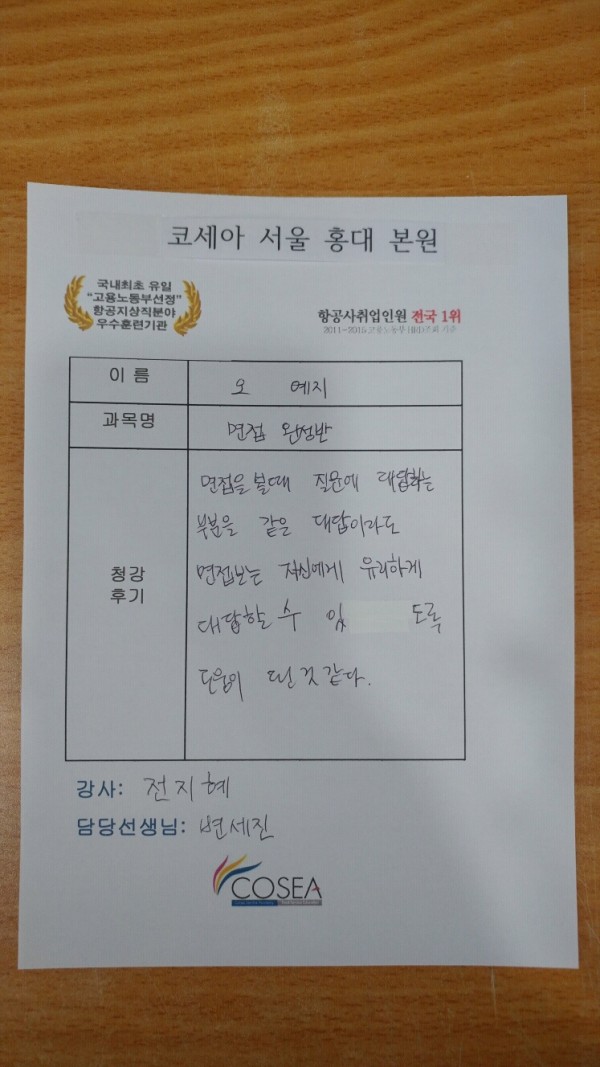 코세아 서울 홍대 본원
국내최초 유일
"고용노동부선정"
항공지상직분야
우수훈련기관
항공사취업인원 전국 1위
2011~2015 고용노동부 HRD조회 기준
이 름
오 예지
과목명
면접 완성반
청강
후기
면접을 볼때 질문에 대답하는
부분을 같은 대답이라도
면접보는 자신에게 유리하게
대답할 수 있 도록
도움이 된것 같다.
강사: 전지혜
담당선생님: 변세진
COSEA